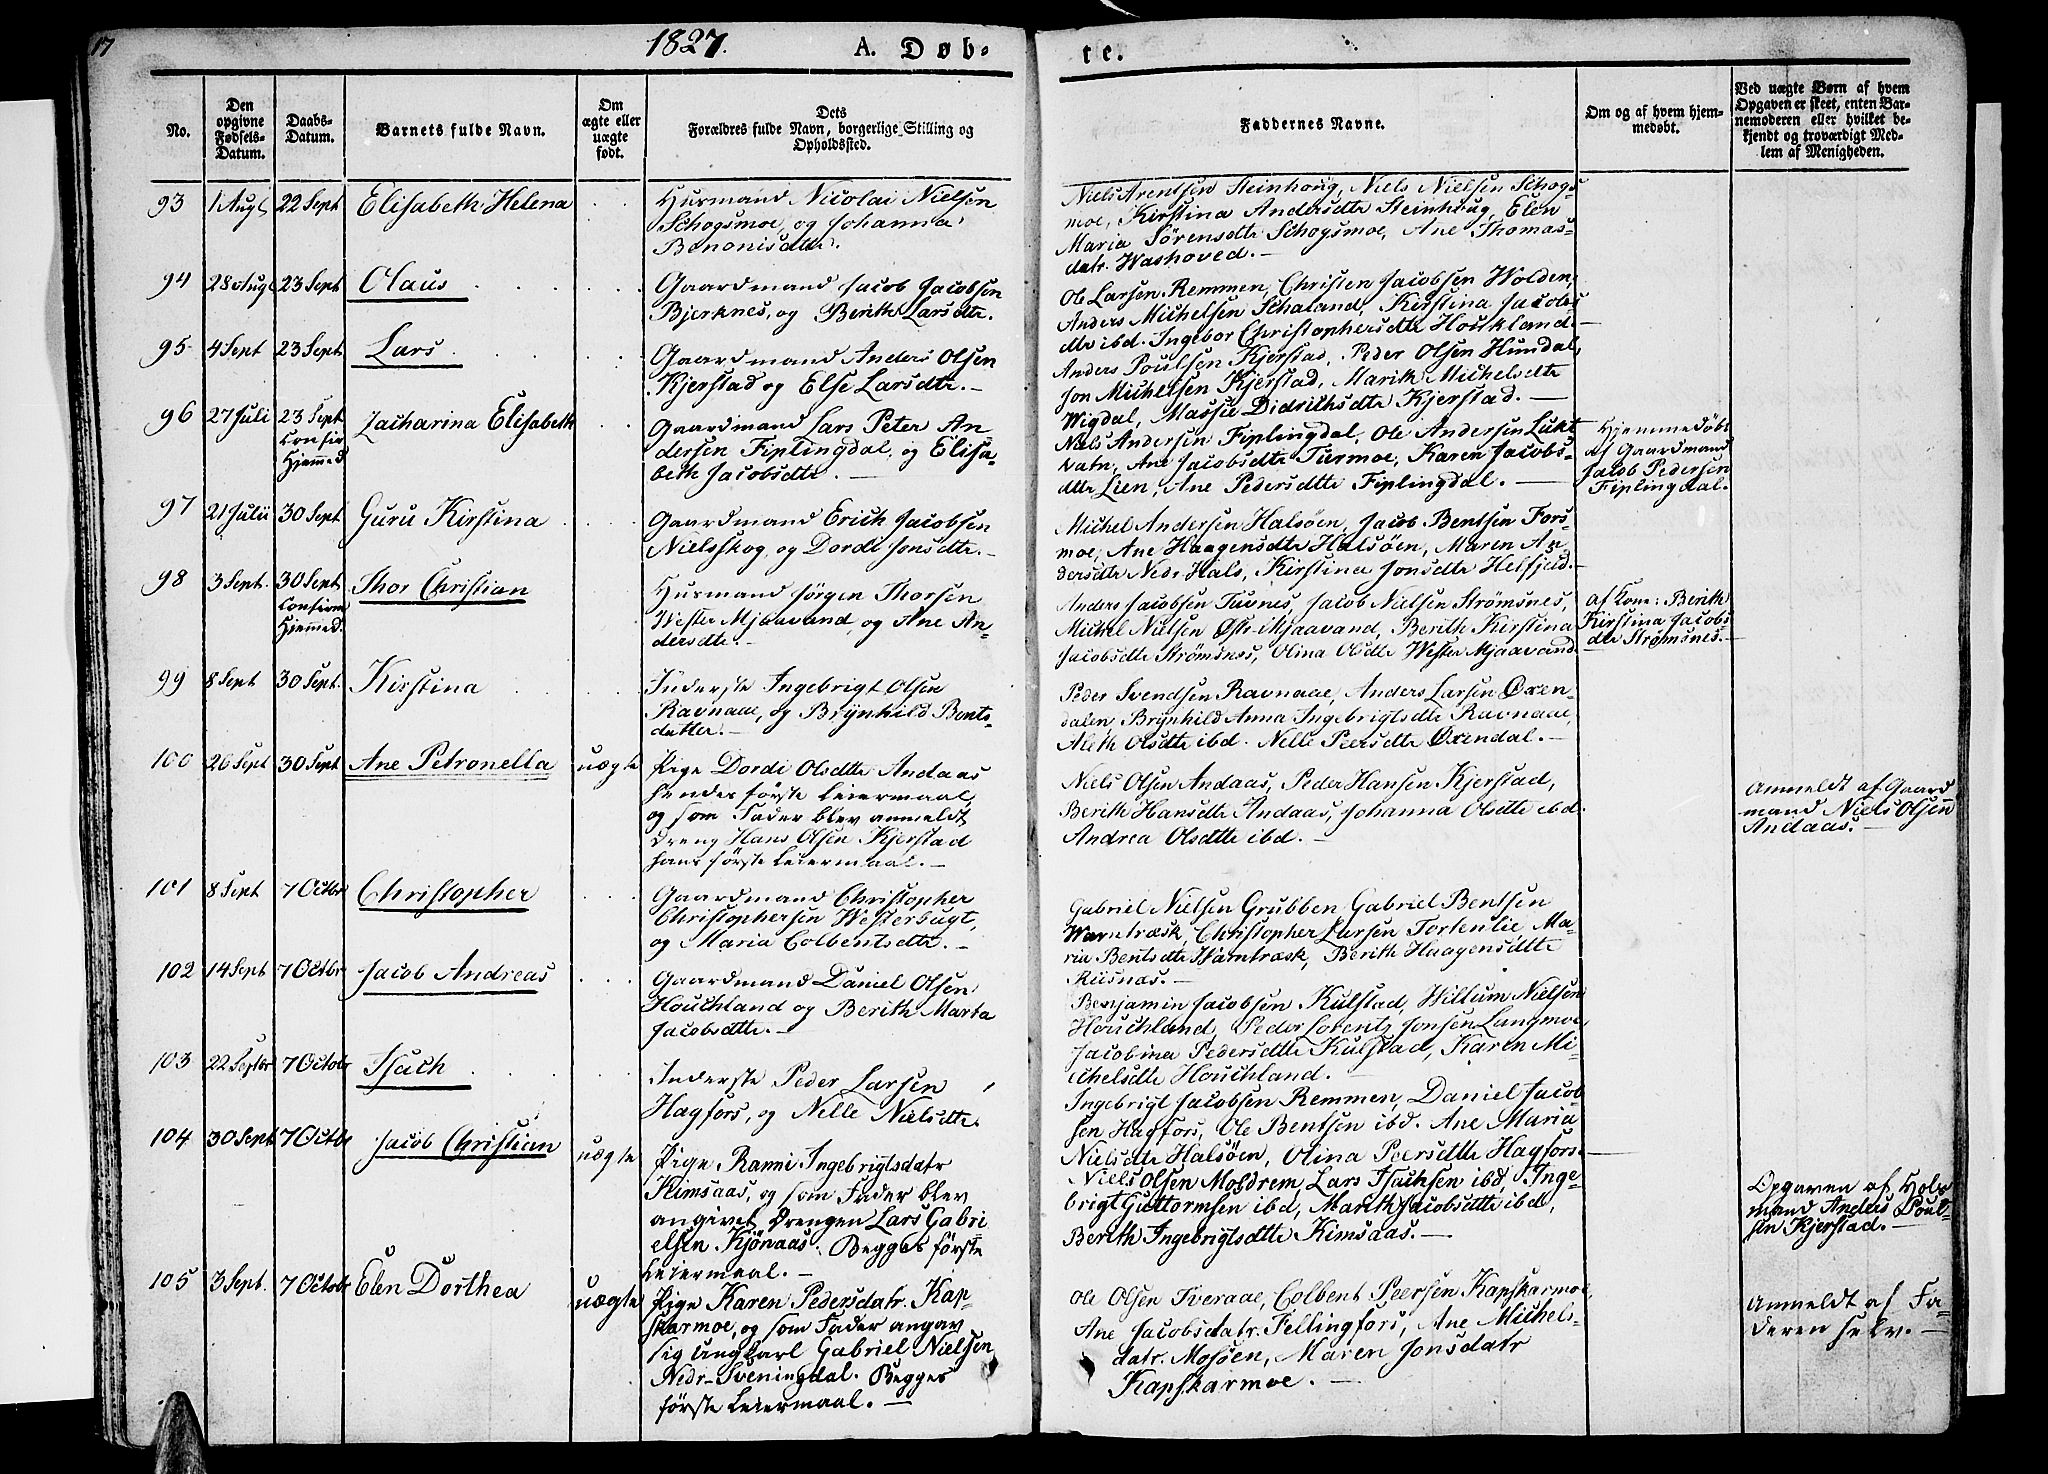 17
1827.
A. Døb-
te.
No.
Den
opgivne
Fødsels-
Datum.
Daabs-
Datum.
Barnets fulde Navn.
Om
ægte eller
uægte
født.
Dets
Forældres fulde Navn, borgerlige Stilling og
Opholdssted.
Faddernes Navne.
Om og af hvem hjem-
medøbt.
Ved uægte Børn af hvem
Opgaven er skeet, enten Bar-
nemoderen eller hvilket be-
kjendt og troværdigt Med-
lem af Menigheden.
93
1 Aug
22 Sept
Elisabeth Helena
Husmand Nicolai Nielsen
Schogsmoe, og Johanna
Benonisdtte.
Niels Arentsen Steinhoug, Niels Nielsen Schogs-
moe, Kirstina Andersdtte Steinhoug, Elen
Maria Sörensdtte Schogsmoe, Ane Thomas-
datr. Washoved. —
94
28 Aug
23 Sept
Olaus
Gaardmand Jacob Jacobsen
Bjerknes, og Berith Larsdtte.
Ole Larsen Remmen, Christen Jacobsen Wolden,
Anders Michelsen Schaland, Kirstina Jacobs-
dtte ibd. Ingebor Christophersdtte Houkland. —
95
4 Sept
23 Sept
Lars
Gaardmand Anders Olsen
Kjerstad og Else Larsdtte. —
Anders Poulsen Kjerstad, Peder Olsen Hundal,
Jon Michelsen Kjerstad, Marith Michelsdtte
Wigdal, Massie Didrichsdtte Kjerstad. —
96
27 Juli
23 Sept
Confir
Hjemmed
Zacharina Elisabeth
Gaardmand Lars Peter An
dersen Fiplingdal, og Elisa-
beth Jacobsdtte. —
Niels Andersen Fiplingdal, Ole Andersen Lukt
vatn, Ane Jacobsdtte Turmoe, Karen Jacobs-
dtte Lien, Ane Pedersdtte Fiplingdal. —
Hjemmedöbt
af Gaardmand
Jacob Pedersen
Fiplingdal.
97
21 Julii
30 Sept
Guru Kirstina
Gaardmand Erich Jacobsen
Nielsskog, og Dordi Jonsdtte. —
Michel Andersen Halsöen, Jacob Bentsen Fors-
moe, Ane Haagensdtte Halsöen, Maren An
dersdtte Nedr Hals, Kirstina Jonsdtte Helfjeld. —
98
3 Sept.
30 Sept
Confirm
Hjemmed.
Thor Christian
Husmand Jörgen Thorsen
Wester Mjaavand, og Ane An-
dersdtte. —
Anders Jacobsen Tuvnes, Jacob Nielsen Strömsnes,
Michel Nielsen Öster Mjaavand, Berith Kirstina
Jacobsdtte Strömsnes, Olina Olsdtte Wester Mjaavand.
af Kone: Berith
Kirstina Jacobs-
dtte Strömsnes. —
99
8 Sept
30 Sept.
Kirstina
Inderste Ingebrigt Olsen
Ravnaae, og Brÿnhild Bents-
datter. —
Peder Svendsen Ravnaae, Anders Larsen Öxen-
dalen Brÿnhild Anna Ingebrigtsdtte Ravnaae,
Aleth Olsdtte ibd. Nelle Peersdtte Öxendal. —
100
26 Sept
30 Sept
Ane Petronella
uægte
Pige Dordi Olsdtte Andaas
hendes förste Leiermaal,
og som Fader blev anmeldt
Dreng Hans Olsen Kjerstad
hans förste Leiermaal. —
Niels Olsen Andaas, Peder Hansen Kjerstad,
Berith Hansdtte Andaas, Johanna Olsdtte ibd.
Andrea Olsdtte ibd. —
Anmeldt af Gaard
mand Niels Olsen
Andaas. —
101
8 Sept
7 Octbr
Christopher
Gaardmand Christopher
Christophersen Westerbugt,
og Maria Colbentsdtte. —
Gabriel Nielsen Grubben Gabriel Bentsen
Warntræsk, Christopher Larsen Tortenlie, Ma-
ria Bentsdtte Warntræsk, Berith Haagensdtte
Rusnæs. —
102
14 Sept
7 Octbr
Jacob Andreas
Gaardmand Daniel Olsen
Houchland og Berith Marta
Jacobsdtte. —
Benjamin Jacobsen Kulstad, Willum Nielsen
Houchland, Peder Lorentz Jonsen Langmoe,
Jacobina Pedersdtte Kulstad, Karen Mi-
chelsdtte Houchland. —
103
22 Septbr
7 Octobr
Isach
Inderste Peder Larsen
Hagfors, og Nelle Nielsdtte.
Ingebrigt Jacobsen Remmen, Daniel Jacob
sen Hagfors, Ole Bentsen ibd. Ane Maria
Nielsdtte Halsöen, Olina Peersdtte Hagfors. —
104
30 Sept
7 Octbr
Jacob Christian
uægte
Pige Rami Ingebrigtsdatr
Kimsaas, og som Fader blev
angivet Drengen Lars Gabri
elsen Kjönaas. Begges förste
Leiermaal. —
Niels Olsen Mosdrem, Lars Isachsen ibd, Inge-
brigt Guttormsen ibd, Marith Jacobsdtte ibd,
Berith Ingebrigtsdtte Kimsaas. —
Opgaven af Hols
mand Anders Poul-
sen Kjerstad. —
105
3 Sept.
7 Octobr
Elen Dorthea
uægte
Pige Karen Pedersdatr. Kap-
skarmoe, og som Fader angav
sig Ungkarl Gabriel Nielsen
Nedr-Sveningdal. Begges
förste Leiermaal. —
Ole Olsen Tveraae, Colbent Peersen Kapskarmoe,
Ane Jacobsdatr. Fellingfors, Ane Michels-
datr. Mosöen, Maren Jonsdatr
Kapskarmoe. —
Anmeldt af Fa-
deren selv. —